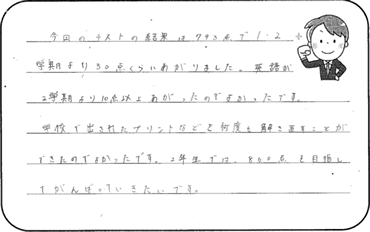 今回のテストの結果は793点で1・2
学期より30点くらいあがりました。英語が
2学期より10点以上あがったのでよかったです。
学校で出されたプリントなどを何度も解き直すことが
できたのでよかったです。2年生では、800点を目指し
てがんばっていきたいです。